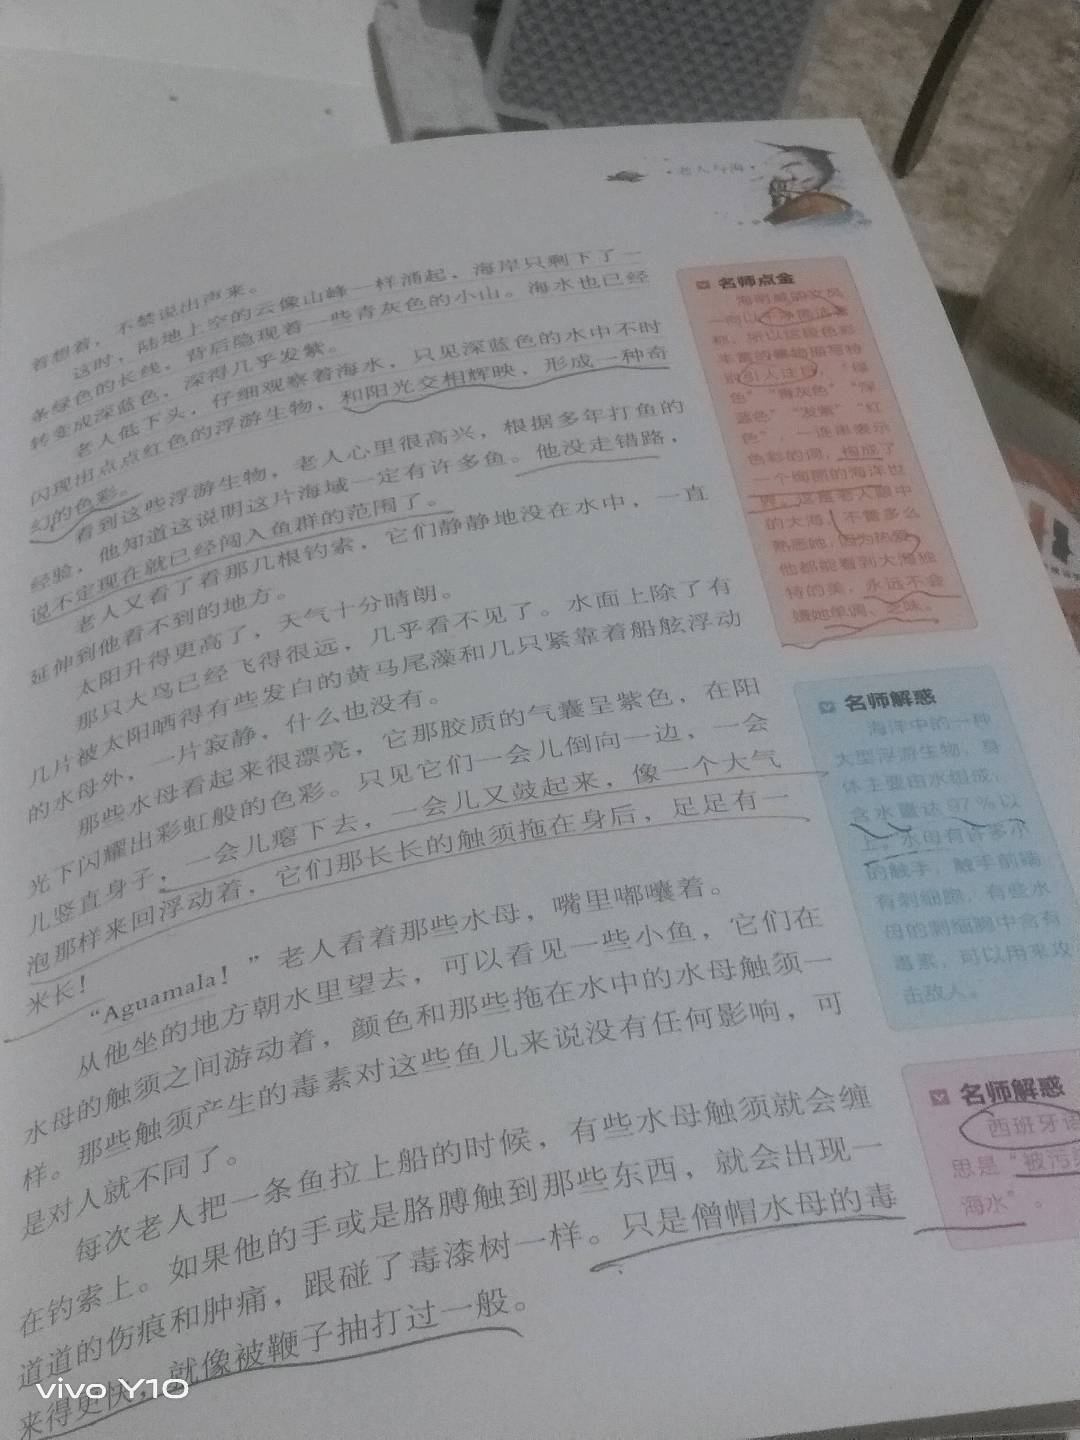 ·老人与海·
着想着，不禁说出声来。
这时，陆地上空的云像山峰一样涌起，海岸只剩下了一
条绿色的长线，背后隐现着一些青灰色的小山。海水也已经
转变成深蓝色，深得几乎发紫。
老人低下头，仔细观察着海水，只见深蓝色的水中不时
闪现出点点红色的浮游生物，和阳光交相辉映，形成一种奇
幻的色彩。
看到这些浮游生物，老人心里很高兴，根据多年打鱼的
经验，他知道这说明这片海域一定有许多鱼。他没走错路，
说不定现在就已经闯入鱼群的范围了。
老人又看了看那几根钓索，它们静静地没在水中，一直
延伸到他看不到的地方。
太阳升得更高了，天气十分晴朗。
那只大鸟已经飞得很远，几乎看不见了。水面上除了有
几片被太阳晒得有些发白的黄马尾藻和几只紧靠着船舷浮动
的水母外，一片寂静，什么也没有。
那些水母看起来很漂亮，它那胶质的气囊呈紫色，在阳
光下闪耀出彩虹般的色彩。只见它们一会儿倒向一边，一会
儿竖直身子，一会儿瘪下去，一会儿又鼓起来，像一个大气
泡那样来回浮动着，它们那长长的触须拖在身后，足足有一
米长！
“Aguamala！”老人看着那些水母，嘴里嘟囔着。
从他坐的地方朝水里望去，可以看见一些小鱼，它们在
水母的触须之间游动着，颜色和那些拖在水中的水母触须一
样。那些触须产生的毒素对这些鱼儿来说没有任何影响，可
是对人就不同了。
每次老人把一条鱼拉上船的时候，有些水母触须就会缠
在钓索上。如果他的手或是胳膊触到那些东西，就会出现一
道道的伤痕和肿痛，跟碰了毒漆树一样。只是僧帽水母的毒
来得更快，就像被鞭子抽打过一般。
名师点金
海明威的文风
一向以干净简洁著
称，所以这段色彩
丰富的景物描写特
别引人注目，“绿
色”“青灰色”“深
蓝色”“发紫”“红
色”，一连串表示
色彩的词，构成了
一个绚丽的海洋世
界。这是老人眼中
的大海，不管多么
熟悉她，因为热爱，
他都能看到大海独
特的美，永远不会
嫌她单调、乏味。
名师解惑
海洋中的一种
大型浮游生物，身
体主要由水组成，
含水量达97%以
上。水母有许多小
的触手，触手前端
有刺细胞，有些水
母的刺细胞中含有
毒素，可以用来攻
击敌人。
名师解惑
西班牙语
思是“被污染
海水”。
vivo Y10